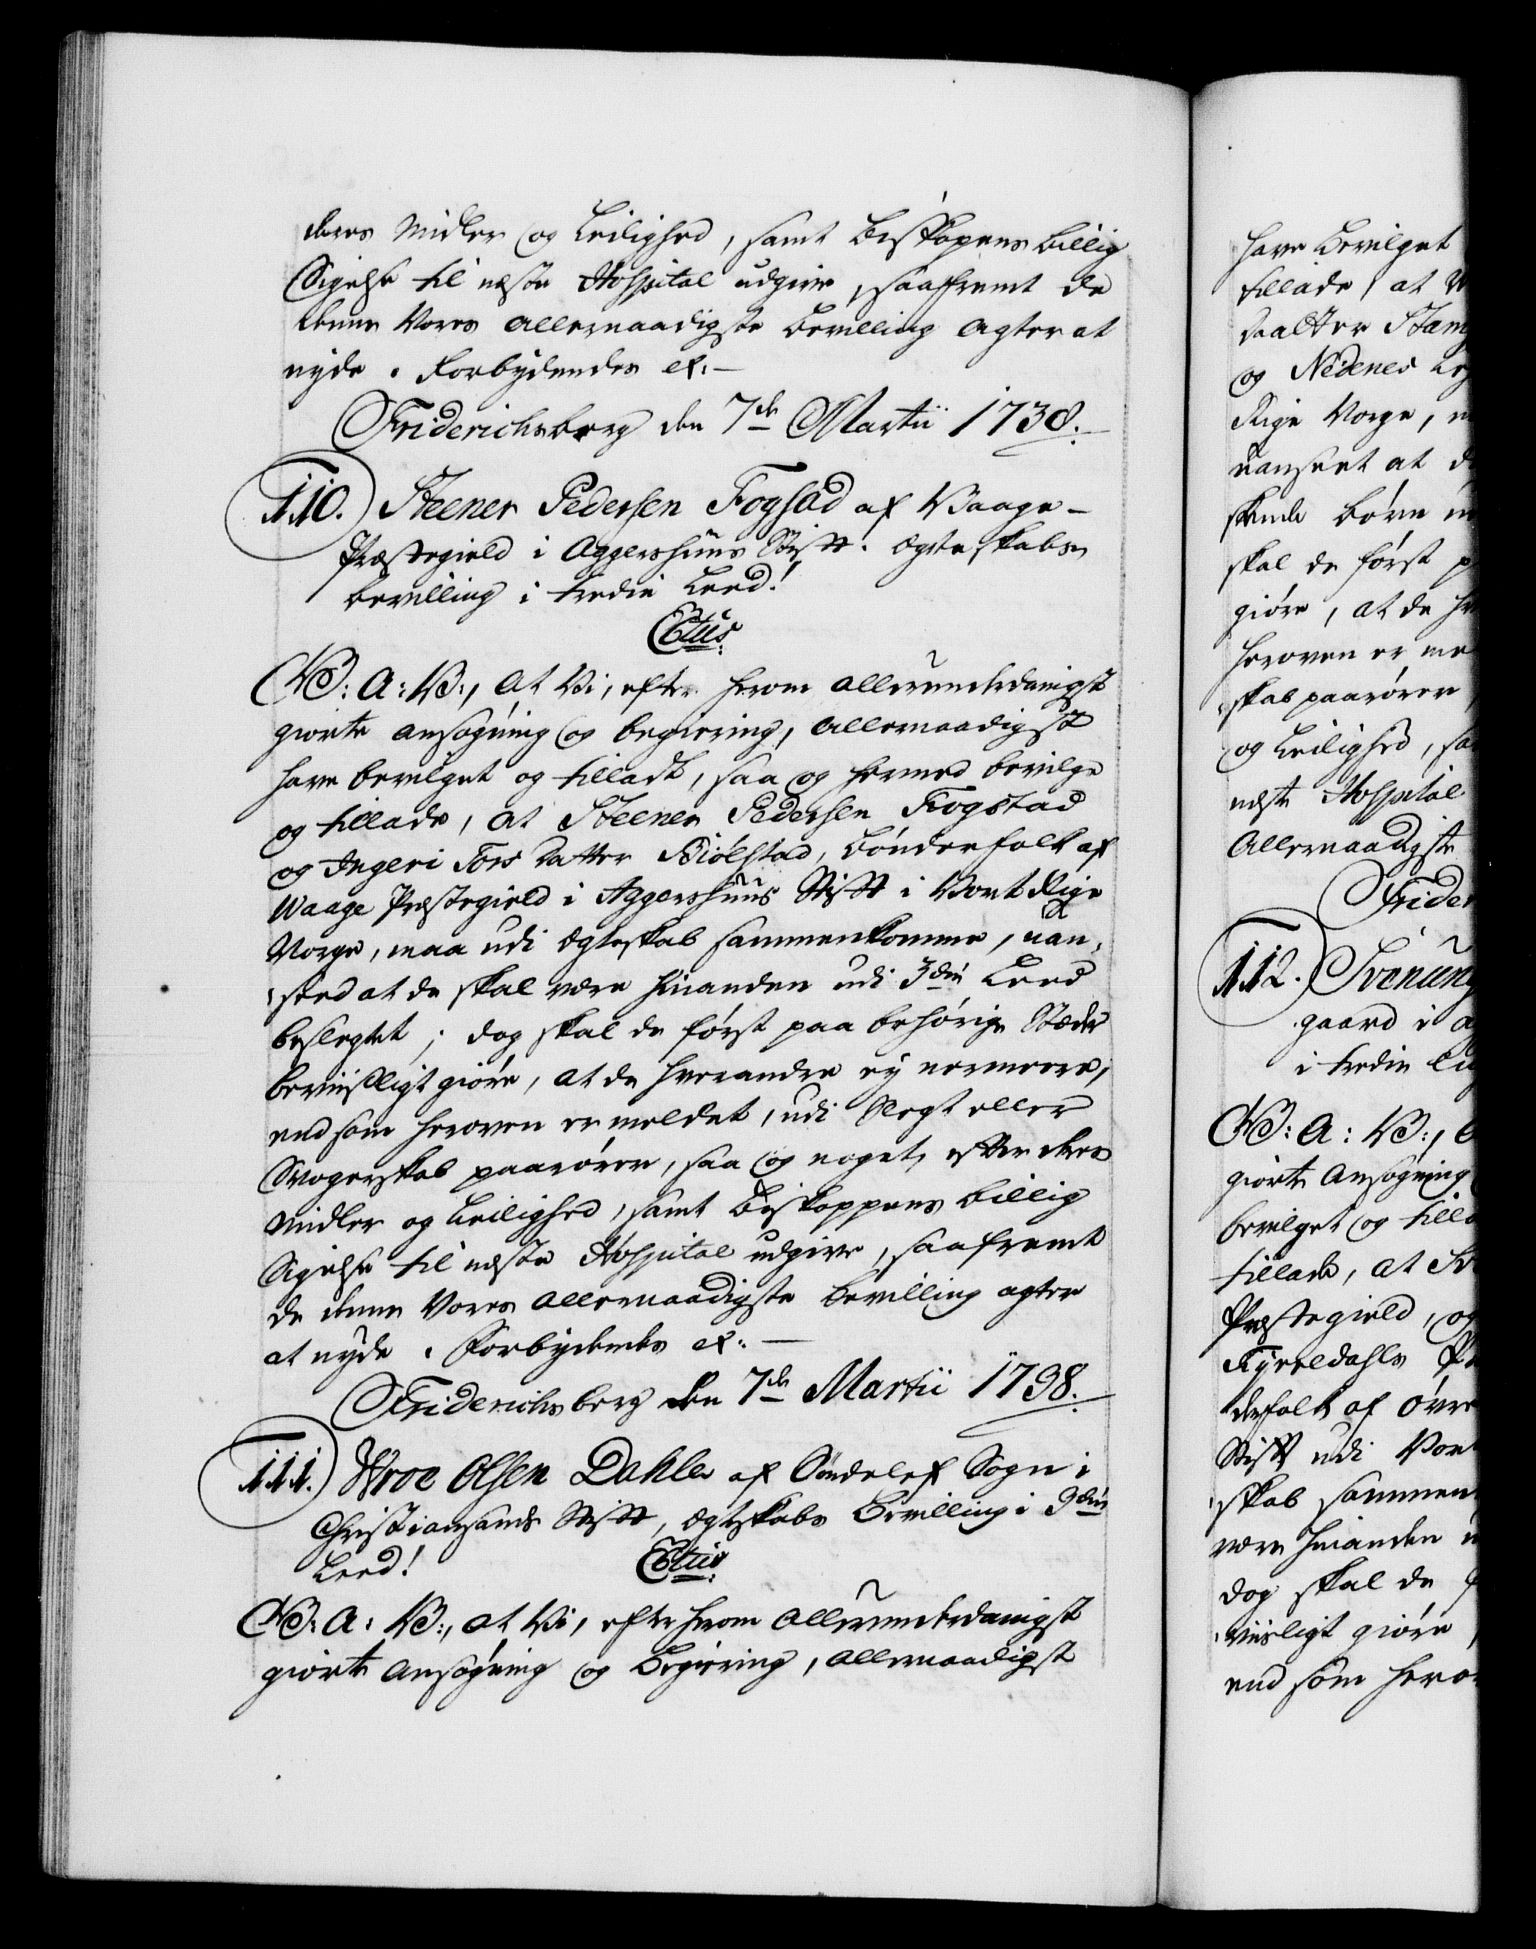 deres Midler og Leilighed, samt Biskopens billig
Sigelse til neste Hospital udgive, saafremt de
denne Vores allernaadigste Bevilling agter at
nyde. Forbydendes etc.
Friderichsberg den 7de Martii 1738.
110. Steener Pedersen Fogstad af Waage
Præstegield i Aggershuus Stift. Ægteskabs
bevilling i tredie Leed!
C6tus.
W: A: W:, At Vi, efter herom allerunderdanigst
giorte ansøgning og begiering, allernaadigst
have bevilget og tilladt, saa og hermed bevilge
og tillade, at Steener Pedersen Fogstad
og Ingeri Tors Datter Biølstad, bønderfolk af
Waage Præstegield i Aggershuus Stift i Vort Rige
Norge, maa udi Ægteskab sammenkomme, uan-
seed at de skal være hinanden udi 3die Leed
beslegtet; dog skal de først paa behørige Stæder
bevisligt giøre, at de hverandre ey nermere,
end som heroven er meldet, udi Slegt eller
Svogerskab paarører, saa og noget, efter deres
Midler og Leilighed, samt Biskoppens billig
Sigelse til neste Hospital udgive, saafremt
de denne Vores allernaadigste bevilling agter
at nyde. Forbydendes etc.
Friderichsberg den 7de Martii 1738.
111. Wroe Olsen Dahle af Søndelef Sogn i
Christiansands Stift, Ægteskabs Bevilling i 3die
Leed!
W: A: W:, at Vi, efter herom allerunderdanigst
giorte ansøgning og Begiering, allernaadigst
have bevilget
tillade, at
daatter Stam
og Nedenes Le
Rige Norge,
uanseet at d
skende børn
skal de først p
giøre, at de h
heroven er me
skab paarører
og Leilighed, sa
neste Hospital
Allernaadigste
Frider
112. Svenung
gaard i A
i tredie Le
W: A: W:,
giorte Ansøgning
bevilget og till
tillade, at Sv
Præstegield, og
derfolk af Øvre
Stift udi Vor
skab sammen
være hinanden
dog skal de
visligt giøre,
end som hero